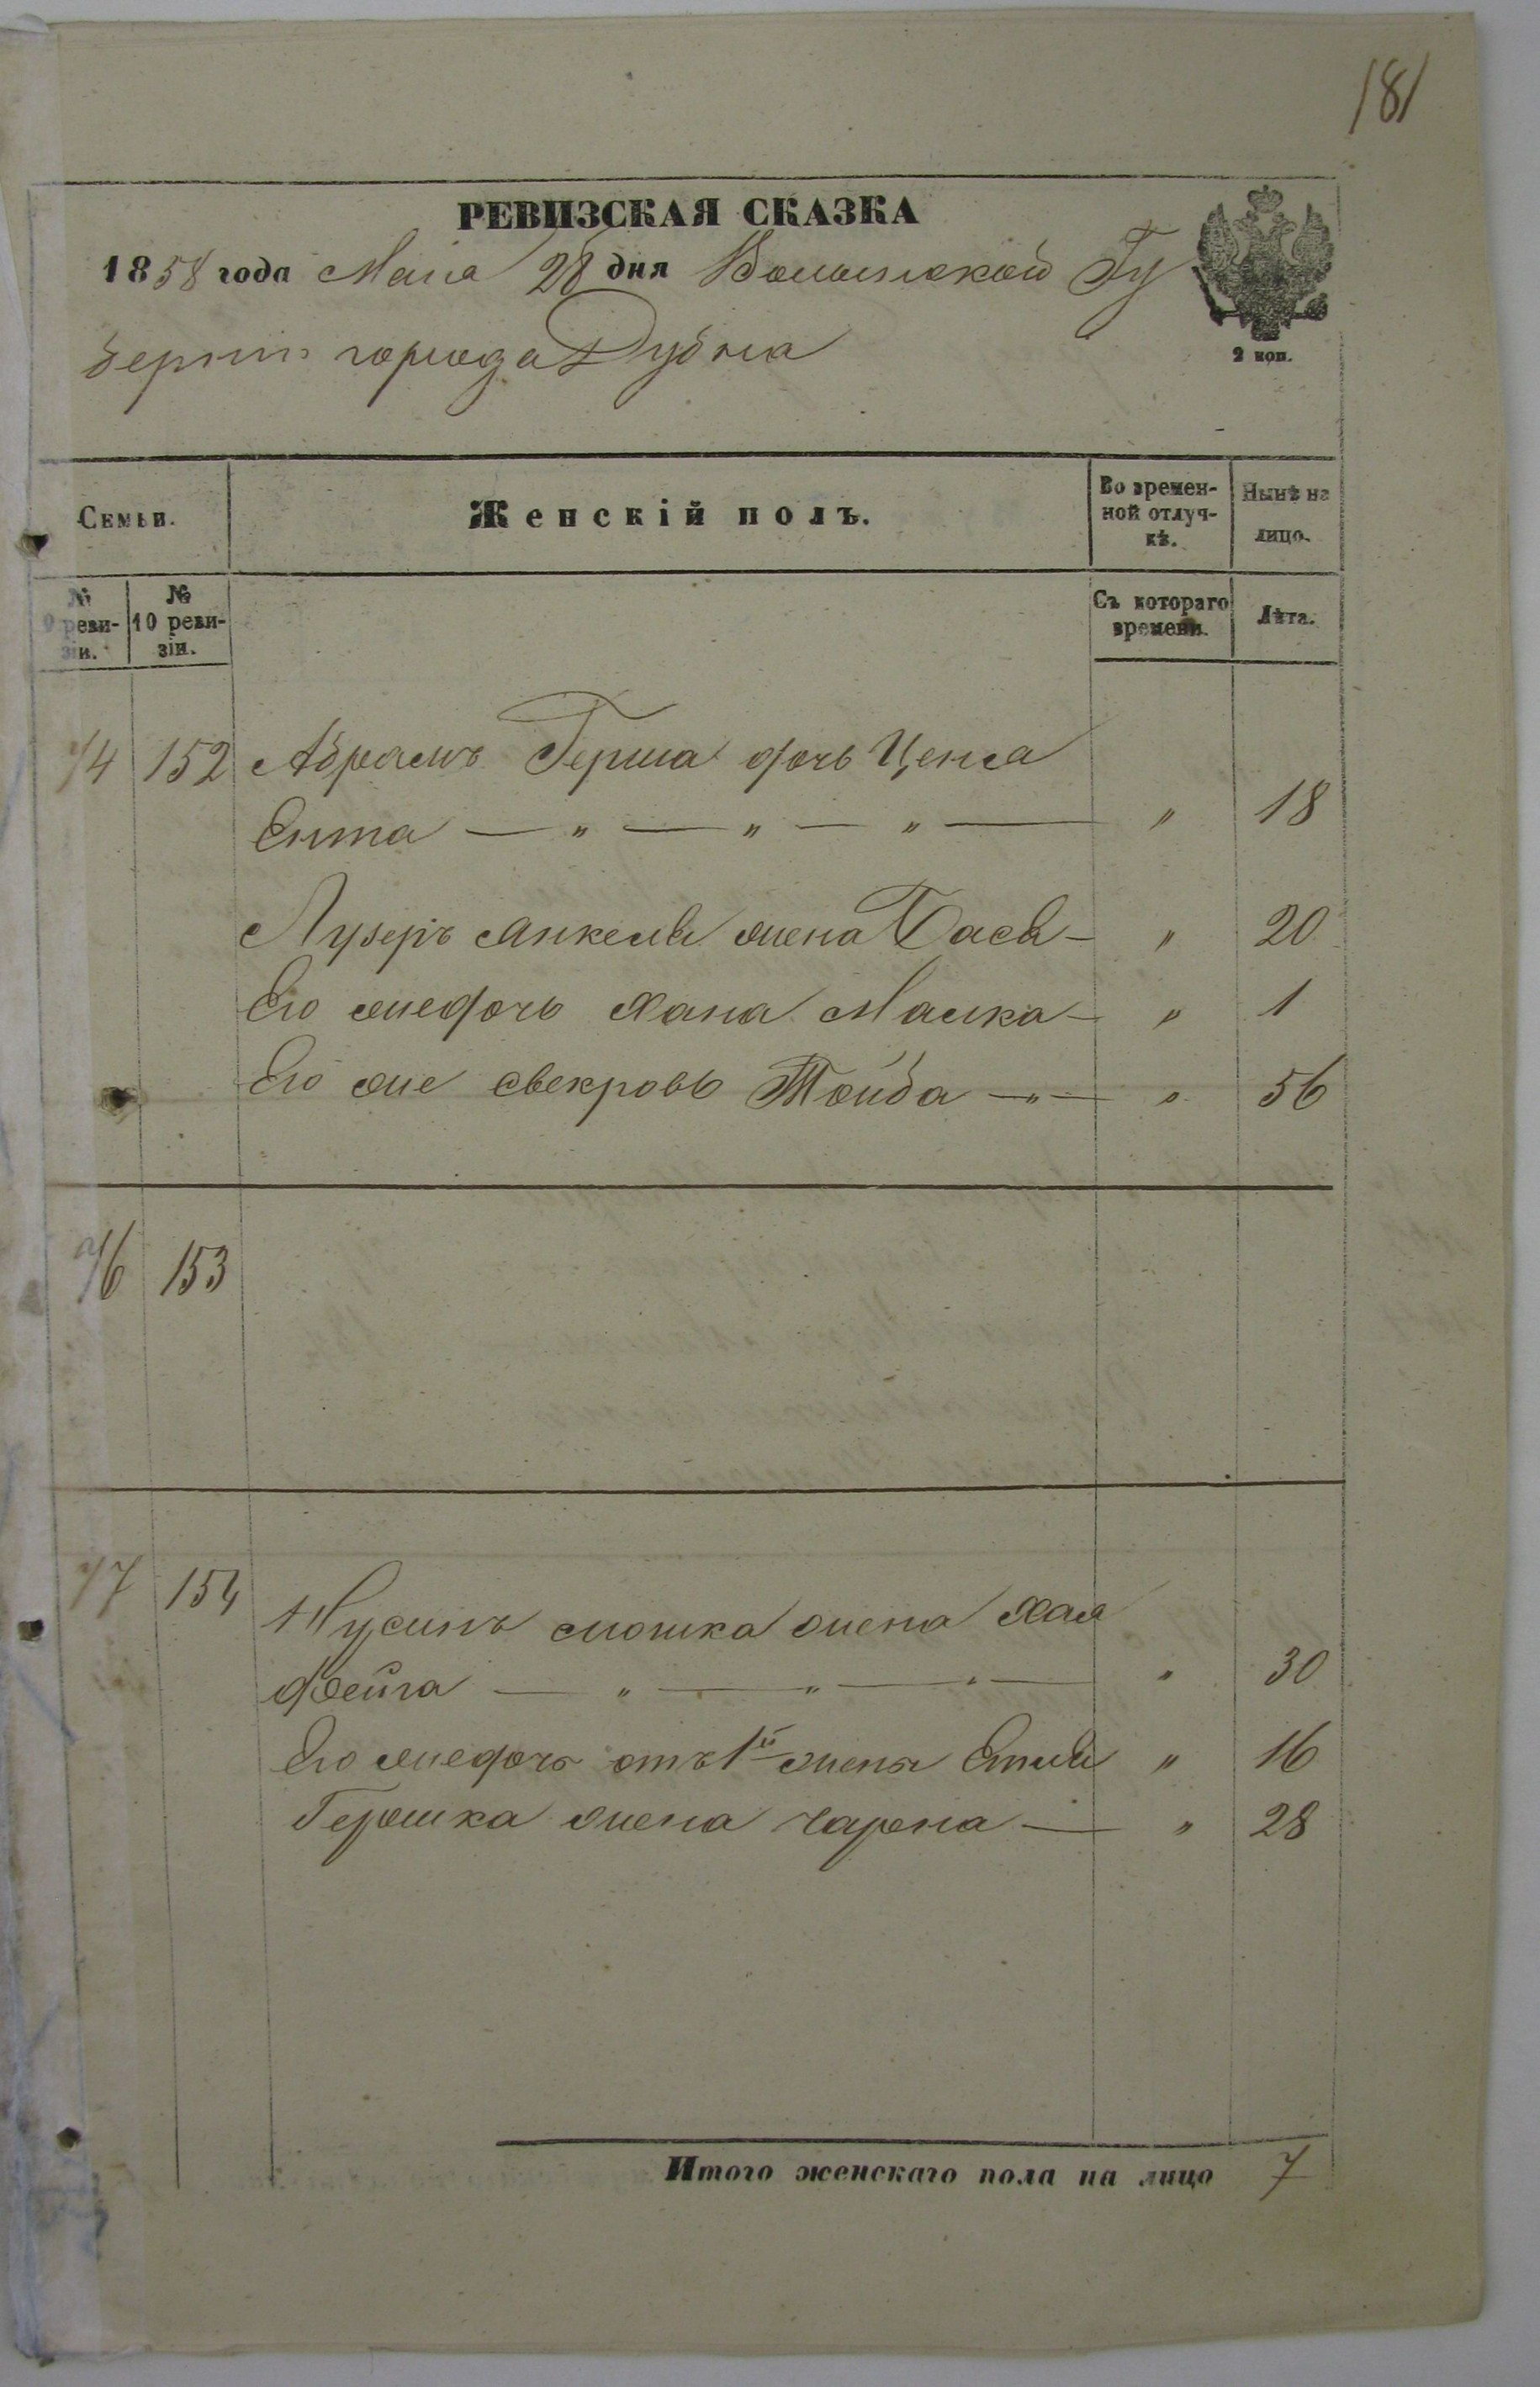 181
РЕВИЗСКАЯ СКАЗКА
1858 года Маія 28 дня Волынской Гу
берніи города Дубна
2 коп.
Семьи.
Женскій полъ.
Во времен-
ной отлуч-
кѣ.
Нынѣ на
лицо.
№
9 реви-
зіи.
№
10 реви-
зіи.
Съ котораго
времени.
Лѣта.
152 Абрамъ Герша дочь Ценса
Ента — " — " — " — " 18
Лузеръ Янкеля жена Бася — " 20
Его же дочь Хана Малка — " 1
Его же свекровь Тойба — " — " 56
153
154 Нусинъ Мошка жена Хая
Фейга — " — " — " — " 30
Его же дочь отъ 1й жены Етля " 16
Гершка жена Чарна — " 28
Итого женскаго пола на лицо 7